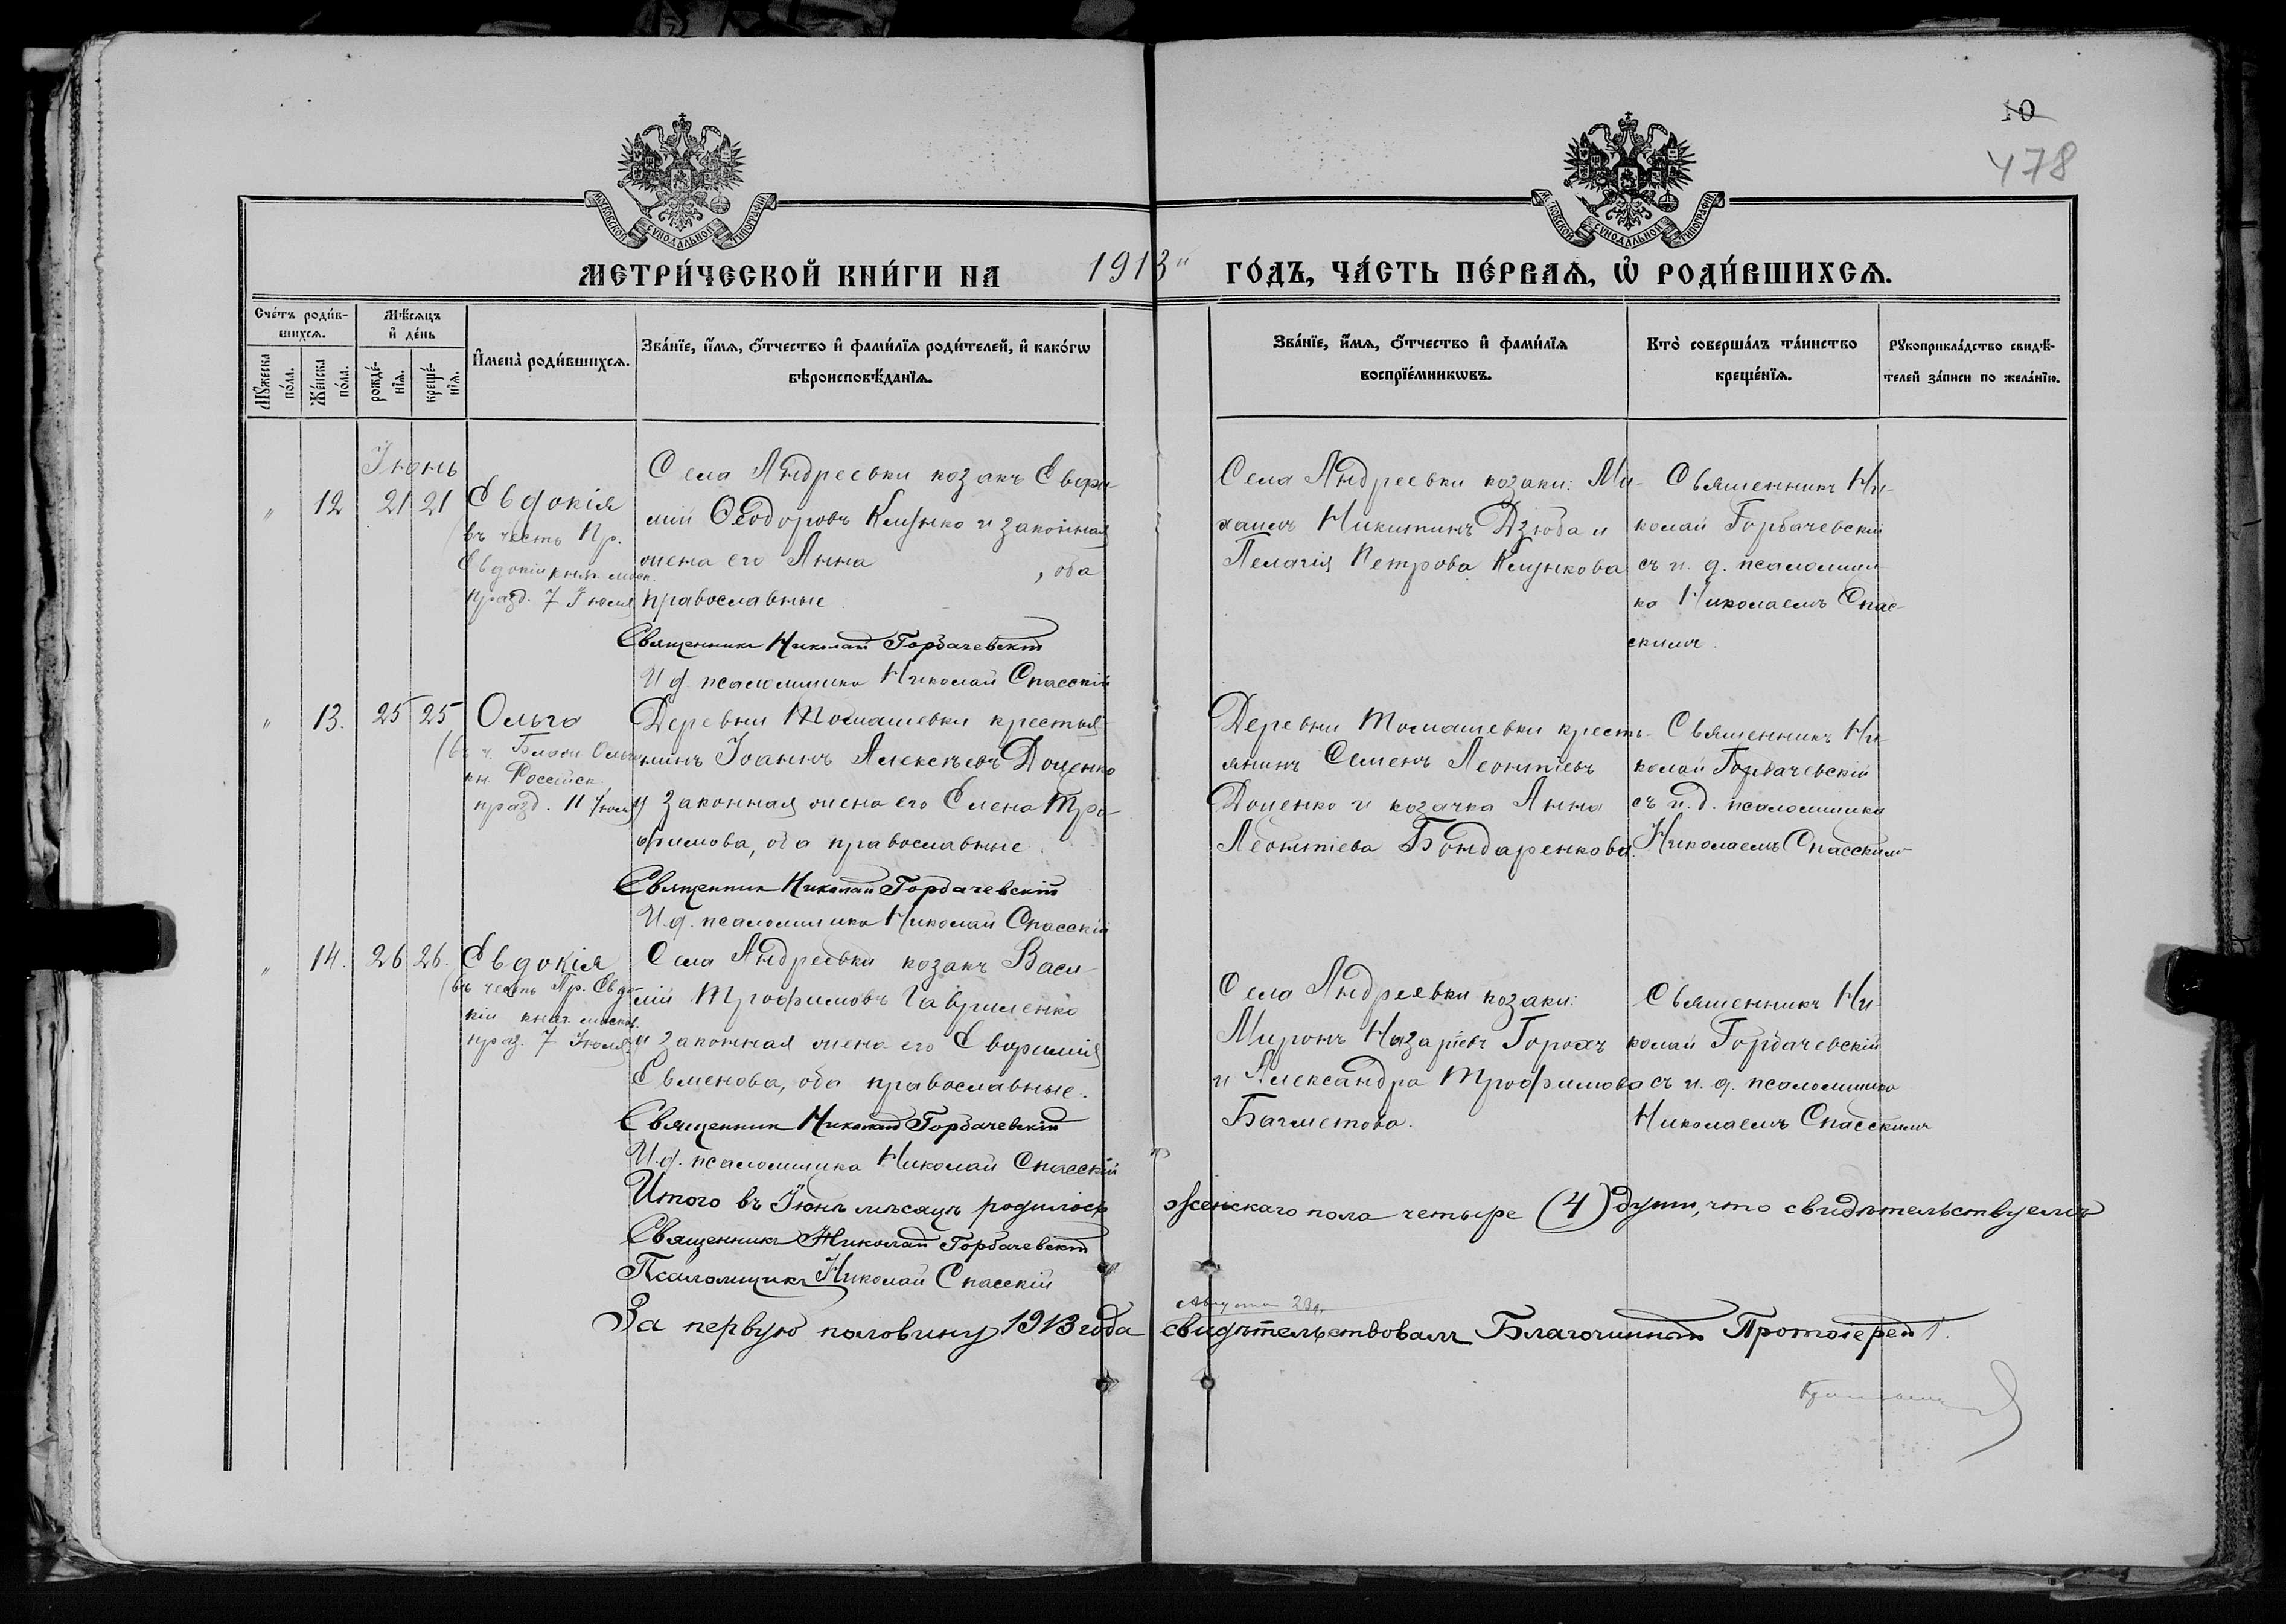 10
478
МОСКОВСКОЙ СѴНОДАЛЬНОЙ ТИПОГРАФІИ
МОСКОВСКОЙ СѴНОДАЛЬНОЙ ТИПОГРАФІИ
МЕТРИ́ЧЕСКОЙ КНИ́ГИ НА 1913" ГО́ДЪ, ЧА́СТЬ ПЕ́РВАѦ, Ѡ҆ РОДИ́ВШИХСѦ.
Сче́тъ роди́в-
шихсѧ.
Мꙋ́жеска по́ла.
Же́нска по́ла.
Мѣ́сѧцъ
и҆ де́нь
рожде́-нїѧ.
креще́-нїѧ.
И҆мена̀ роди́вшихсѧ.
Зва́нїе, и҆́мѧ, ѻ҆́тчество и҆ фами́лїѧ роди́телей, и҆ како́гѡ
вѣроисповѣ́данїѧ.
Зва́нїе, и҆́мѧ, ѻ҆́тчество и҆ фами́лїѧ
воспрїе́мникѡвъ.
Кто̀ соверша́лъ та́инство
креще́нїѧ.
Рꙋкоприкла́дство свидѣ́-
телей за́писи по жела́нїю.
Іюнь
" 12 21 21
Евдокія
въ честь Пр.
Евдокіи княг. моск.
празд. 7 Іюля
Села Андреевки козакъ Евфи-
мій Ѳеодоровъ Клунко и законная
жена его Анна , оба
православные
Священникъ Николай Горбачевскій
И. д. псаломщика Николай Спасскій
Села Андреевки козаки: Ми-
хаилъ Никитинъ Дзюба и
Пелагія Петрова Клункова
Священникъ Ни-
колай Горбачевскій
съ и. д. псаломщи-
ка Николаемъ Спас-
скимъ.
" 13. 25 25
Ольга
(въ ч. Благов. Ольги
кн. Россійск.
празд. 11 Іюля
Деревни Томашевки крестья-
нинъ Іоаннъ Алексѣевъ Доценко
и законная жена его Елена Тро-
фимова, оба православные.
Священникъ Николай Горбачевскій
И. д. псаломщика Николай Спасскій
Деревни Томашевки кресть-
янинъ Семенъ Леонтіевъ
Доценко и козачка Анна
Леонтіева Бондаренкова.
Священникъ Ни-
колай Горбачевскій
съ и. д. псаломщика
Николаемъ Спасскимъ
" 14. 26 26.
Евдокія
(въ честь Пр. Евдо-
кіи княг. москов.
праз. 7 Іюля)
Села Андреевки козакъ Васи-
лій Трофимовъ Гавриленко
и законная жена его Евфимія
Евменова, оба православные.
Священникъ Николай Горбачевскій
И. д. псаломщика Николай Спасскій
Села Андреевки козаки:
Миронъ Назаріевъ Горохъ
и Александра Трофимова
Багметова.
Священникъ Ни-
колай Горбачевскій
съ и. д. псаломщика
Николаемъ Спасскимъ
Итого въ Іюнѣ мѣсяцѣ родилось женскаго пола четыре (4) души, что свидѣтельствуемъ
Священникъ Николай Горбачевскій
Псаломщикъ Николай Спасскій
Августа 20 д.
За первую половину 1913 года свидѣтельствовалъ Благочинный Протоіерей